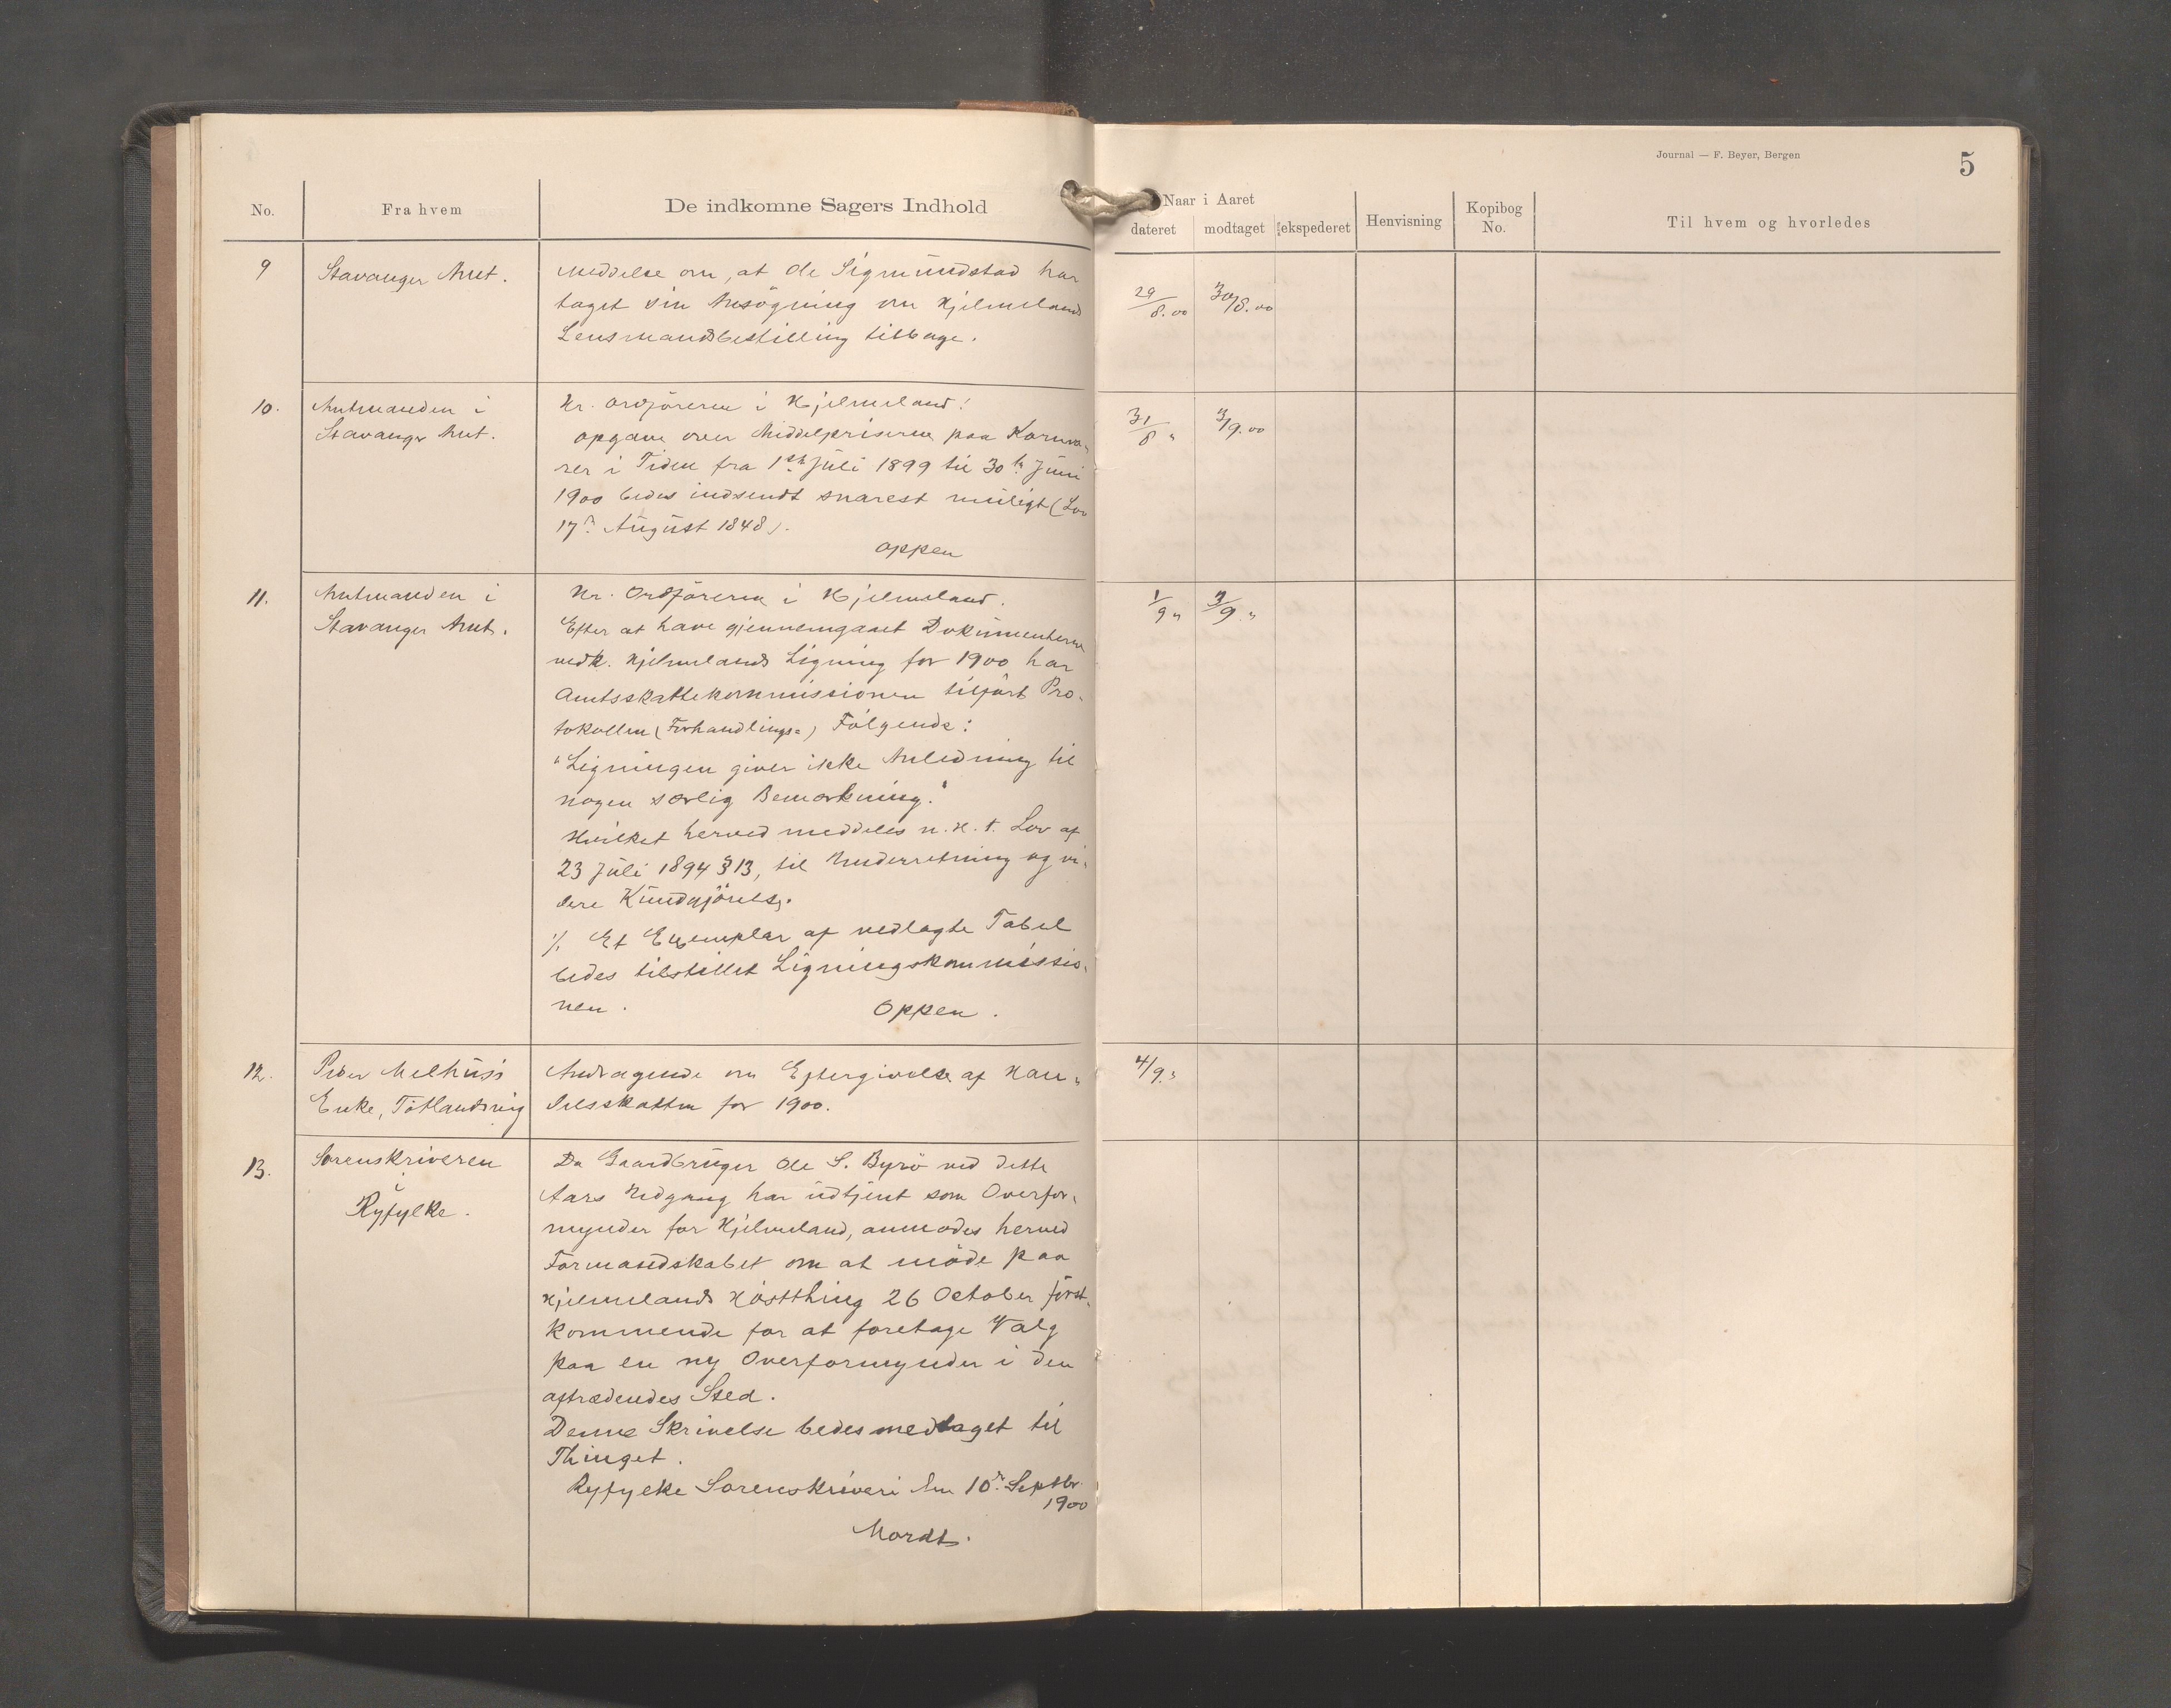 Journal — F. Beyer, Bergen
5
No.
Fra hvem
De indkomne Sagers Indhold
Naar i Aaret
dateret
modtaget
ekspederet
Henvisning
Kopibog
No.
Til hvem og hvorledes
9
Stavanger Amt.
Meddelse om, at Ole Sigmundstad har
taget sin Ansøgning om Hjelmelands
Lensmandsbestilling tilbage.
29/8.00
30/8.00
10.
Amtmanden i
Stavanger Amt.
Hr. Ordføreren i Hjelmeland!
Opgave over Middelpriserne paa Kornva-
rer i Tiden fra 1ste Juli 1899 til 30te Juni
1900 bedes indsendt snarest muligt (Lov
17de August 1848).
Oppen
31/8 "
3/9.00
11.
Amtmanden i
Stavanger Amt.
Hr. Ordføreren i Hjelmeland.
Efter at have gjennemgaaet Dokumenterne
vedk. Hjelmelands Ligning for 1900 har
Amtsskattekommissionen tilført Pro-
tokollen (Forhandlings=) Følgende:
"Ligningen giver ikke Anledning til
nogen særlig Bemærkning."
Hvilket herved meddeles n. H. t. Lov af
23 Juli 1894 § 13, til Underretning og vi-
dere Kundgjörelse.
./. Et Exemplar af vedlagte Tabel
bedes tilstillet Ligningskommissio-
nen.
Oppen.
1/9 "
3/9 "
12.
Peder Melhus's
Enke, Tøtlandsvig
Andragende om Eftergivelse af Han-
delsskatten for 1900.
4/9 "
13.
Sorenskriveren
i
Ryfylke.
Da Gaardbruger Ole S. Byrø ved dette
Aars Udgang har udtjent som Overfor-
mynder for Hjelmeland, anmodes herved
Formandskabet om at møde paa
Hjelmelands Høstthing 26 October først-
kommende for at foretage Valg
paa en ny Overformynder i den
aftrædendes Sted.
Denne Skrivelse bedes medtaget til
Thinget.
Ryfylke Sorenskriveri den 10de Septbr.
1900
Mordt.